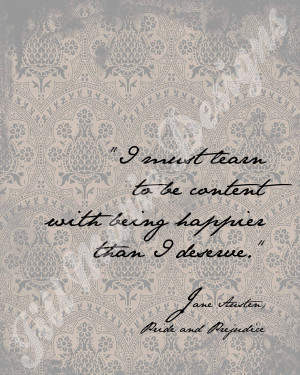 "I must learn
to be content
with being happier
than I deserve."
Jane Austen,
Pride and Prejudice